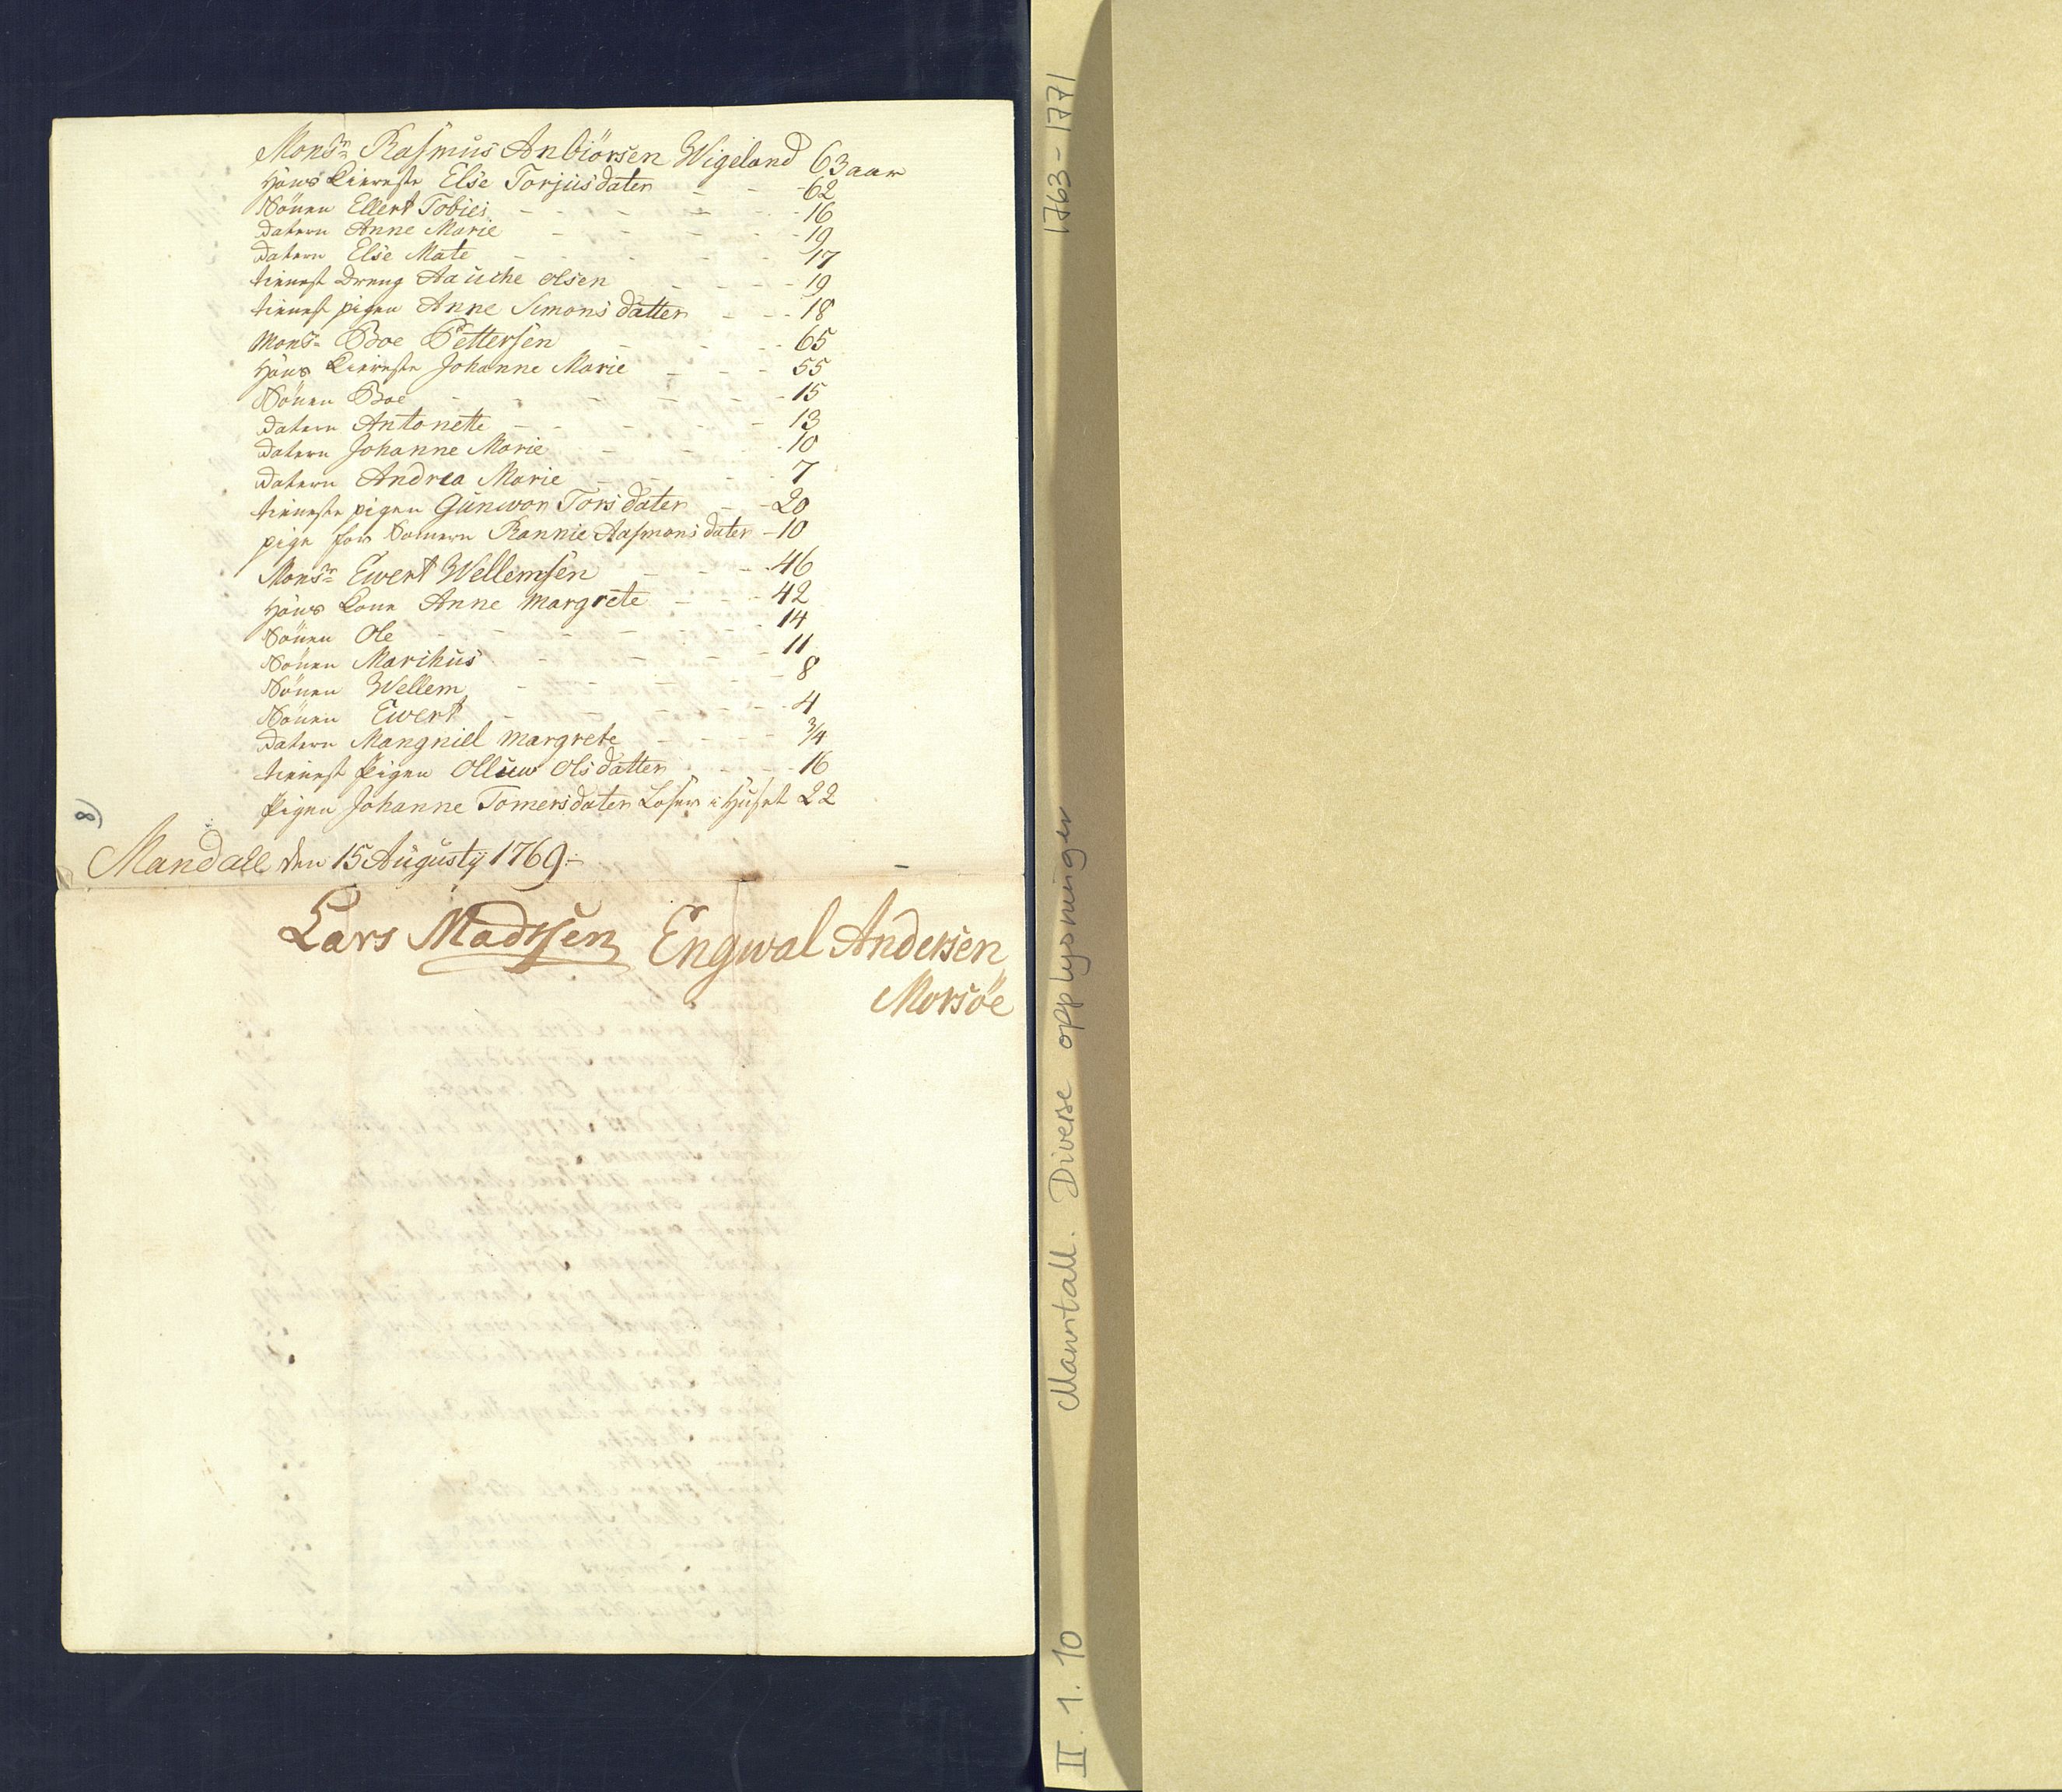 Monsr Rasmus Anbiörsen Wigeland 63 aar
Hans Kiereste Else Torjusdater 62
Sönen Ellert Tobies 16
Datern Anne Marie 19
Datern Else Mate 17
tienest Dreng Aauche Olsen 19
tienest pigen Anne Simons datter 18
Monsr Boe Pettersen 65
Hans Kiereste Johanne Marie 55
Sönen Boe 15
Datern Antonette 13
Datern Johanne Marie 10
Datern Andrea Marie 7
tieneste pigen Gunwor Tors dater 20
pige for Rannie Aasmons dater 10
Monsr Ewert Wellemsen 46
Hans Kone Anne Margrete 42
Sönen Ole 14
Sönen Marihus 11
Sönen Wellem 8
Sönen Ewert 4
Datern Mangniel Margrete 3/4
tienest Pigen Olluw Olsdatter 16
Pigen Johanne Tomersdater Loser i Huset 22
8)
Mandall den 15 Augusty 1769
Lars Madssen Engwal Andersen
Morsöe
II. 1. 10 Manntall. Diverse opplysninger 1763-1771